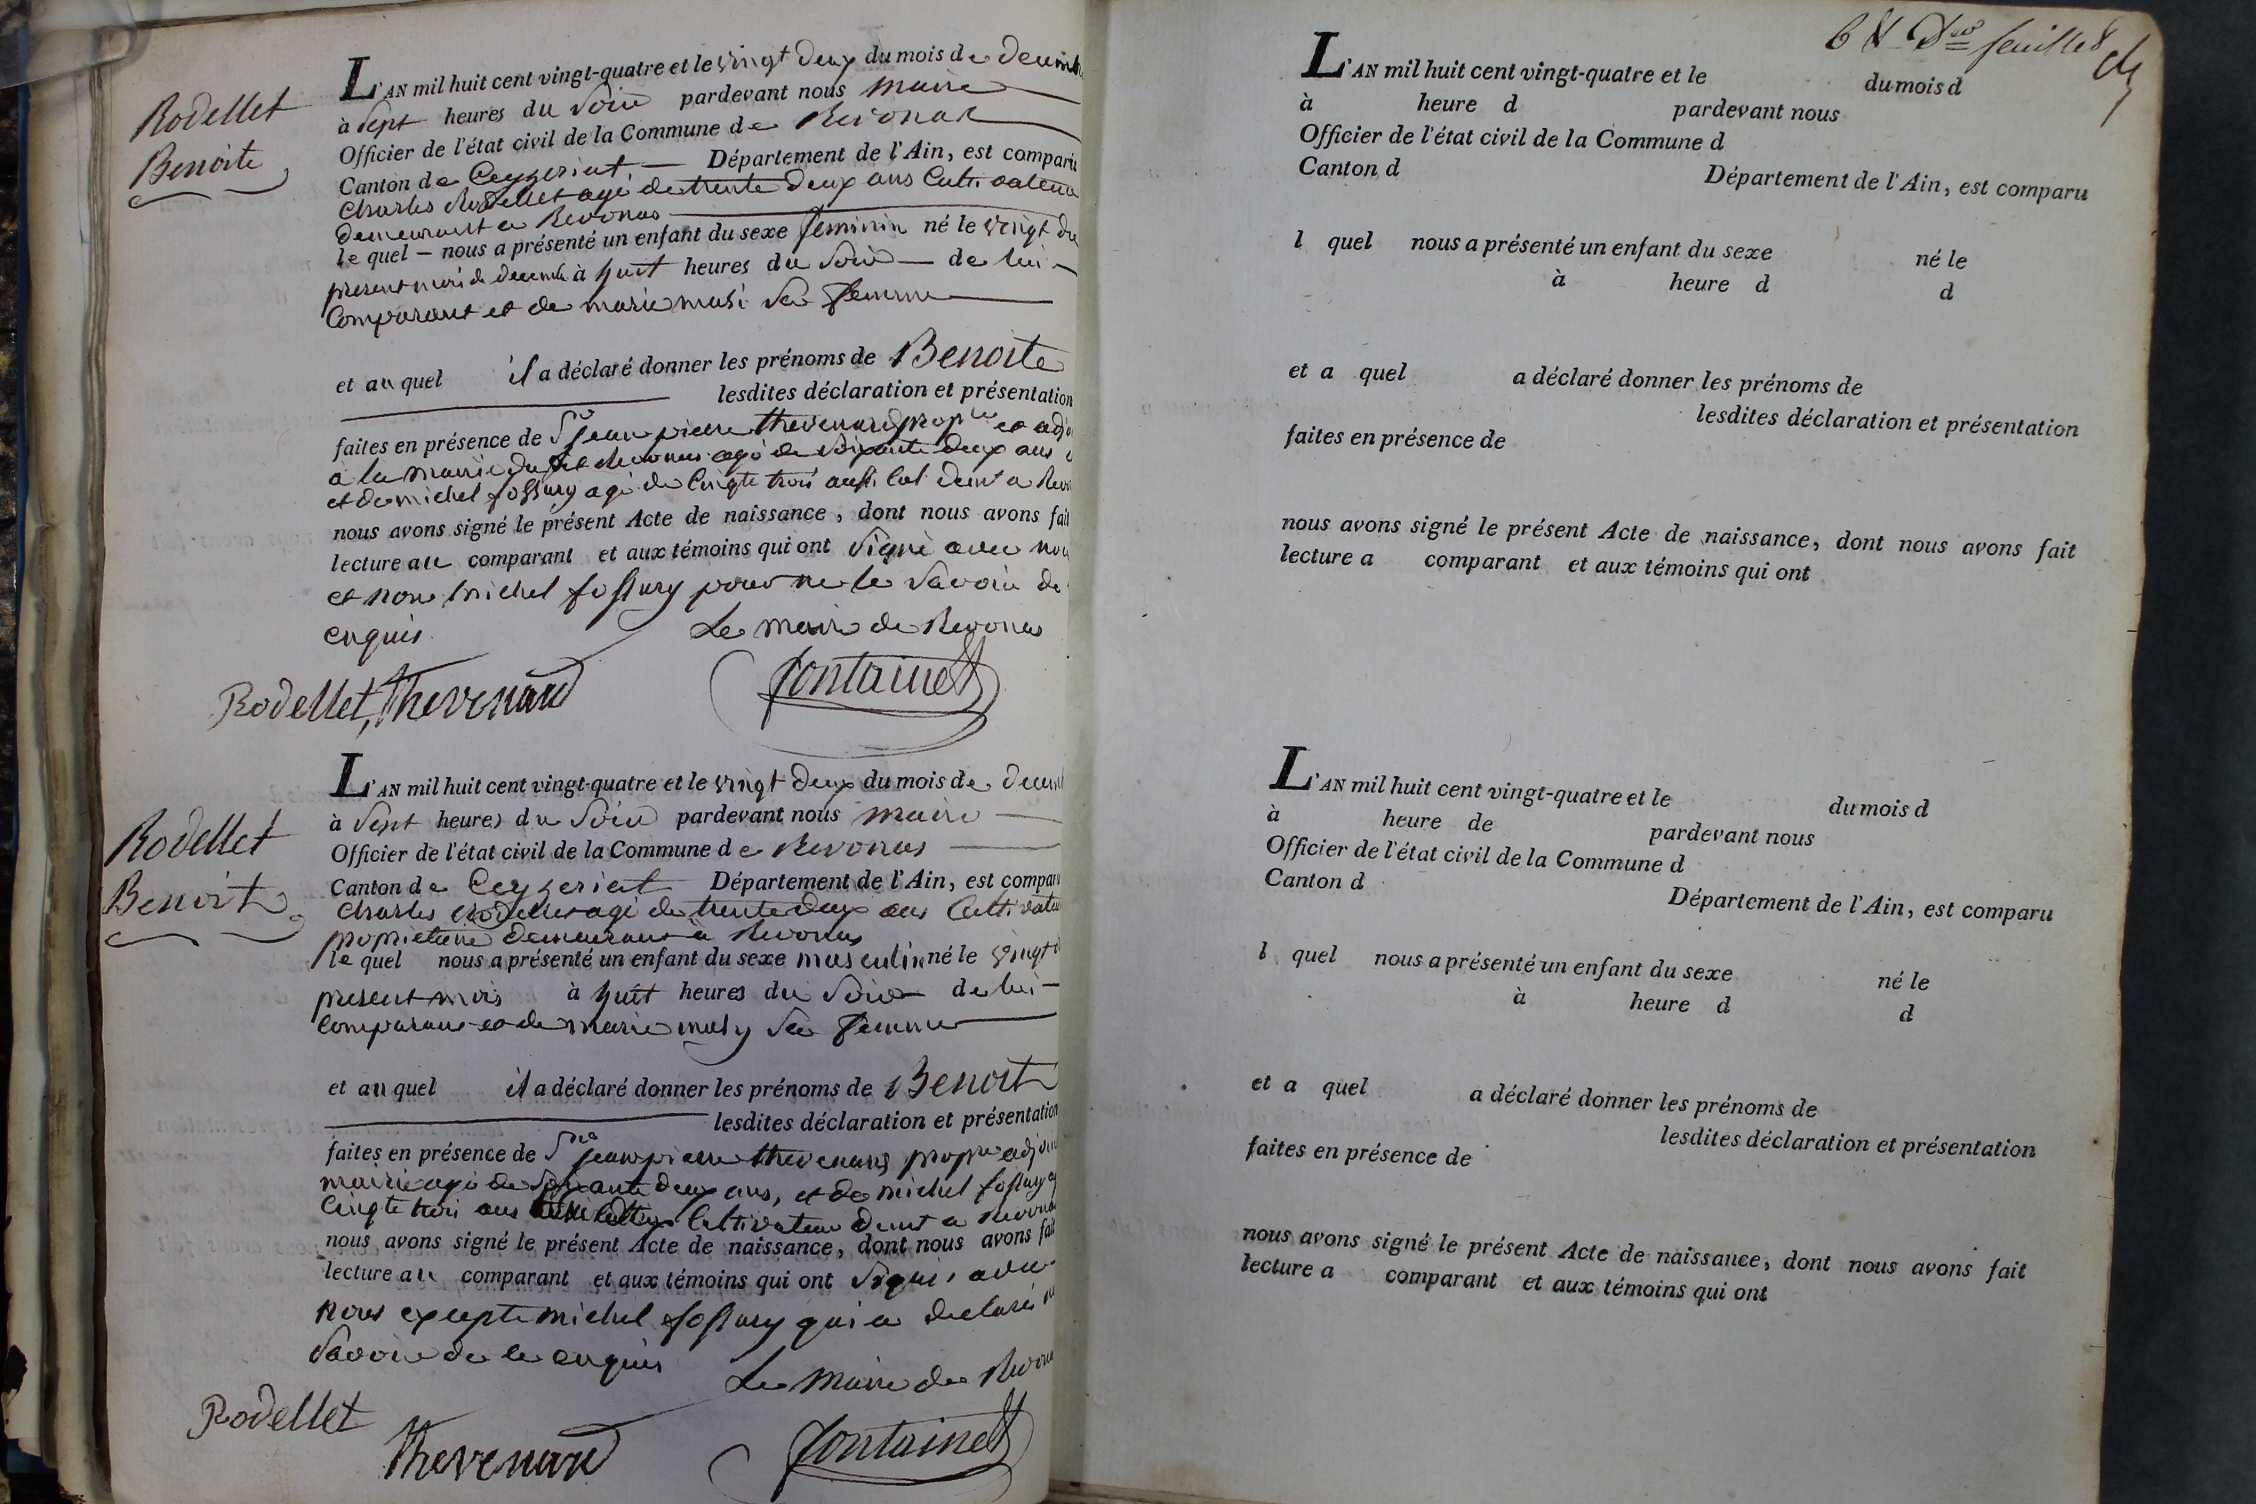 Rodellet
Benoite
L'AN mil huit cent vingt-quatre et le vingt deux du mois de decemb
à sept heures du soir pardevant nous maire
Officier de l'état civil de la Commune de Revonas
Canton de Ceyzeriat Département de l'Ain, est comparu
Charles Rodellet agé de trente deux ans Cultivateur
demeurant a Revonas
le quel — nous a présenté un enfant du sexe feminin né le vingt
present mois de decemb à huit heures du soir — de lui —
Comparant et de marie musi sa femme
et au quel il a déclaré donner les prénoms de Benoite
lesdites déclaration et présentation
faites en présence de Sr jean pierre thevenard propre et adj
a la mairie dudit Revonas agé de soixante deux ans
et de michel fossury agé de Cinqte trois aussi Cult demt a Revo
nous avons signé le présent Acte de naissance, dont nous avons fait
lecture au comparant et aux témoins qui ont signé avec nou
et non michel fossury pour ne le savoir de
enquis
Le maire de Revonas
Rodellet, Thevenard
fontainet
Rodellet
Benoit
L'AN mil huit cent vingt-quatre et le vingt deux du mois de decem
à sept heures du soir pardevant nous maire
Officier de l'état civil de la Commune de Revonas
Canton de Ceyzeriat Département de l'Ain, est comparu
Charles Rodellet agé de trente deux ans Cultivateu
propriétaire demeurant à Revonas
le quel nous a présenté un enfant du sexe masculin né le vingt
present mois à huit heures du soir — de lui —
Comparant et de marie musy sa femme
et au quel il a déclaré donner les prénoms de Benoit
lesdites déclaration et présentation
faites en présence de Sr jean pierre thevenard propre adjoin
mairie agé de soixante deux ans, et de michel fossury
Cinqte trois ans Cultivateur demt a Revonas
nous avons signé le présent Acte de naissance, dont nous avons fait
lecture au comparant et aux témoins qui ont signé avec
nous excepte michel fossury qui a declaré ne
savoir de ce enquis
Le Maire de Revona
Rodellet
Thevenard
fontainet
6 & Der feuillet
L'AN mil huit cent vingt-quatre et le du mois d
à heure d pardevant nous
Officier de l'état civil de la Commune d
Canton d Département de l'Ain, est comparu
l quel nous a présenté un enfant du sexe né le
à heure d d
et a quel a déclaré donner les prénoms de
lesdites déclaration et présentation
faites en présence de
nous avons signé le présent Acte de naissance, dont nous avons fait
lecture a comparant et aux témoins qui ont
L'AN mil huit cent vingt-quatre et le du mois d
à heure de pardevant nous
Officier de l'état civil de la Commune d
Canton d Département de l'Ain, est comparu
l quel nous a présenté un enfant du sexe né le
à heure d d
et a quel a déclaré donner les prénoms de
lesdites déclaration et présentation
faites en présence de
nous avons signé le présent Acte de naissance, dont nous avons fait
lecture a comparant et aux témoins qui ont